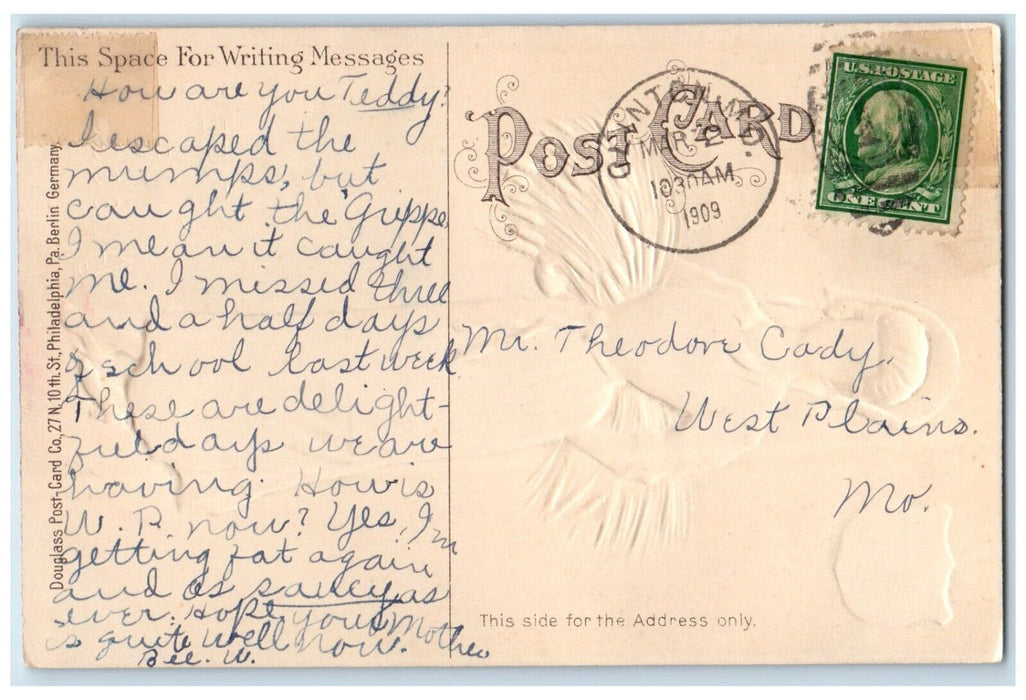 This Space For Writing Messages
How are you Teddy?
I escaped the
mumps, but
caught the Grippe
I mean it caught
me. I missed three
and a half days
of school last week
These are delight-
ful days we are
having. How is
W. P. now? Yes, I'm
getting fat again
and as saucy as
ever. Hope your Mother
is quite well now.
Bee. W.
Douglass Post-Card Co., 27 N. 10th. St., Philadelphia, Pa. Berlin Germany.
POST CARD
MAR 2
1030AM
1909
U.S. POSTAGE
ONE CENT
Mr. Theodore Cady,
West Plains.
Mo.
This side for the Address only.